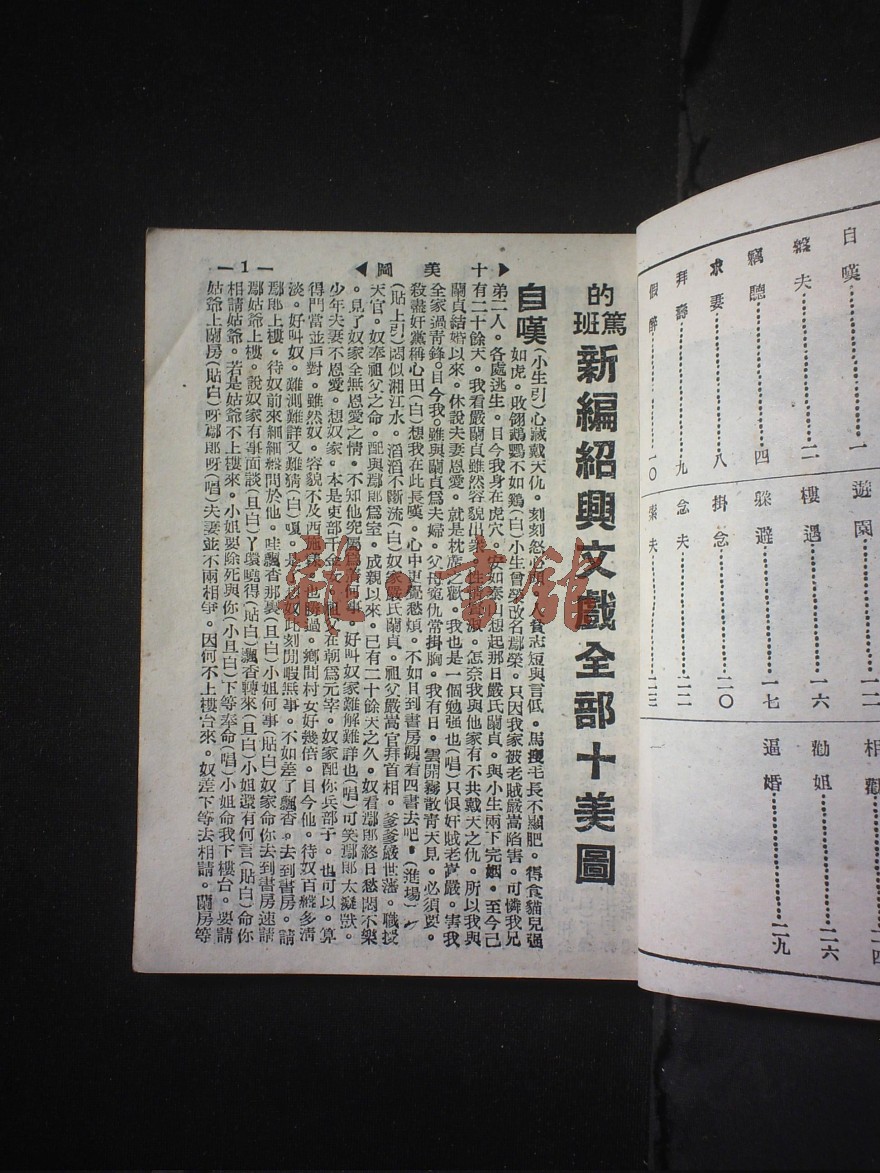 自嘆……一
盤夫……二
竊聽……四
求妻……八
拜壽……九
假醉……一〇
遊園……一二
樓遇……一六
躲避……一七
掛念……二〇
念夫……二二
索夫……二三
相勸……二四
勸姐……二六
逼婚……二九
的篤班新編紹興文戲全部十美圖
十美圖
—1—
自嘆(小生引)心藏戴天仇。刻刻怒心頭。人貧志短與言低。馬瘦毛長不顯肥。得食貓兒强
如虎。敗翎鸚鵡不如鷄(白)小生曾榮改名鄢榮。只因我家被老賊嚴嵩陷害。可憐我兄
弟二人。各處逃生。目今我身在虎穴。安如泰山想起那日嚴氏蘭貞。與小生兩下完姻。至今已
有二十餘天。我看嚴蘭貞雖然容貌出衆。性情賢淑。怎奈我與他家有不共戴天之仇。所以我與
蘭貞結婚以來。休說夫妻恩愛。就是枕席之歡。我也是一個勉强也(唱)只恨奸賊老嵩嚴。害我
全家過靑鋒。目今我。雖與蘭貞爲夫婦。父母寃仇常掛胸。我有日。雲開霧散靑天見。必須要。
殺盡奸黨稱心田(白)想我在此長嘆。心中更覺愁煩。不如且到書房觀看四書去吧。(進場)
(貼上引)悶似湘江水。滔滔不斷流(白)奴家嚴氏蘭貞。祖父嚴嵩官拜首相。爹爹嚴世藩。職授
天官。奴奉祖父之命。配與鄢郞爲室。成親以來。已有二十餘天之久。奴看鄢郞終日愁悶不樂
。見了奴家全無恩愛之情。不知他究屬爲着何事。好叫奴家難解難詳也(唱)可笑鄢郞太癡獃。
少年夫妻不恩愛。想奴家。本是吏部千金女。祖父在朝爲元宰。奴家配你兵部子。也可以。算
得門當並戶對。雖然奴。容貌不及西施樣。也勝過。鄉間村女好幾倍。目今他。待奴百般多淸
淡。好叫奴。難測難詳又難猜(白)嗄。是了奴此刻閒暇無事。不如差了飄香。去到書房。請
鄢郞上樓。待奴前來細細盤問於他。哇飄香那裏(旦白)小姐何事(貼白)奴家命你去到書房速請
鄢姑爺上樓。說奴家有事面談(旦白)丫環曉得(貼白)飄香轉來(旦白)小姐還有何言(貼白)命你
相請姑爺。若是姑爺不上樓來。小姐要除死與你(小旦白)下等奉命(唱)小姐命我下樓台。要請
姑爺上蘭房(貼白)呀鄢郞呀(唱)夫妻並不兩相爭。因何不上樓台來。奴差下等去相請。蘭房等